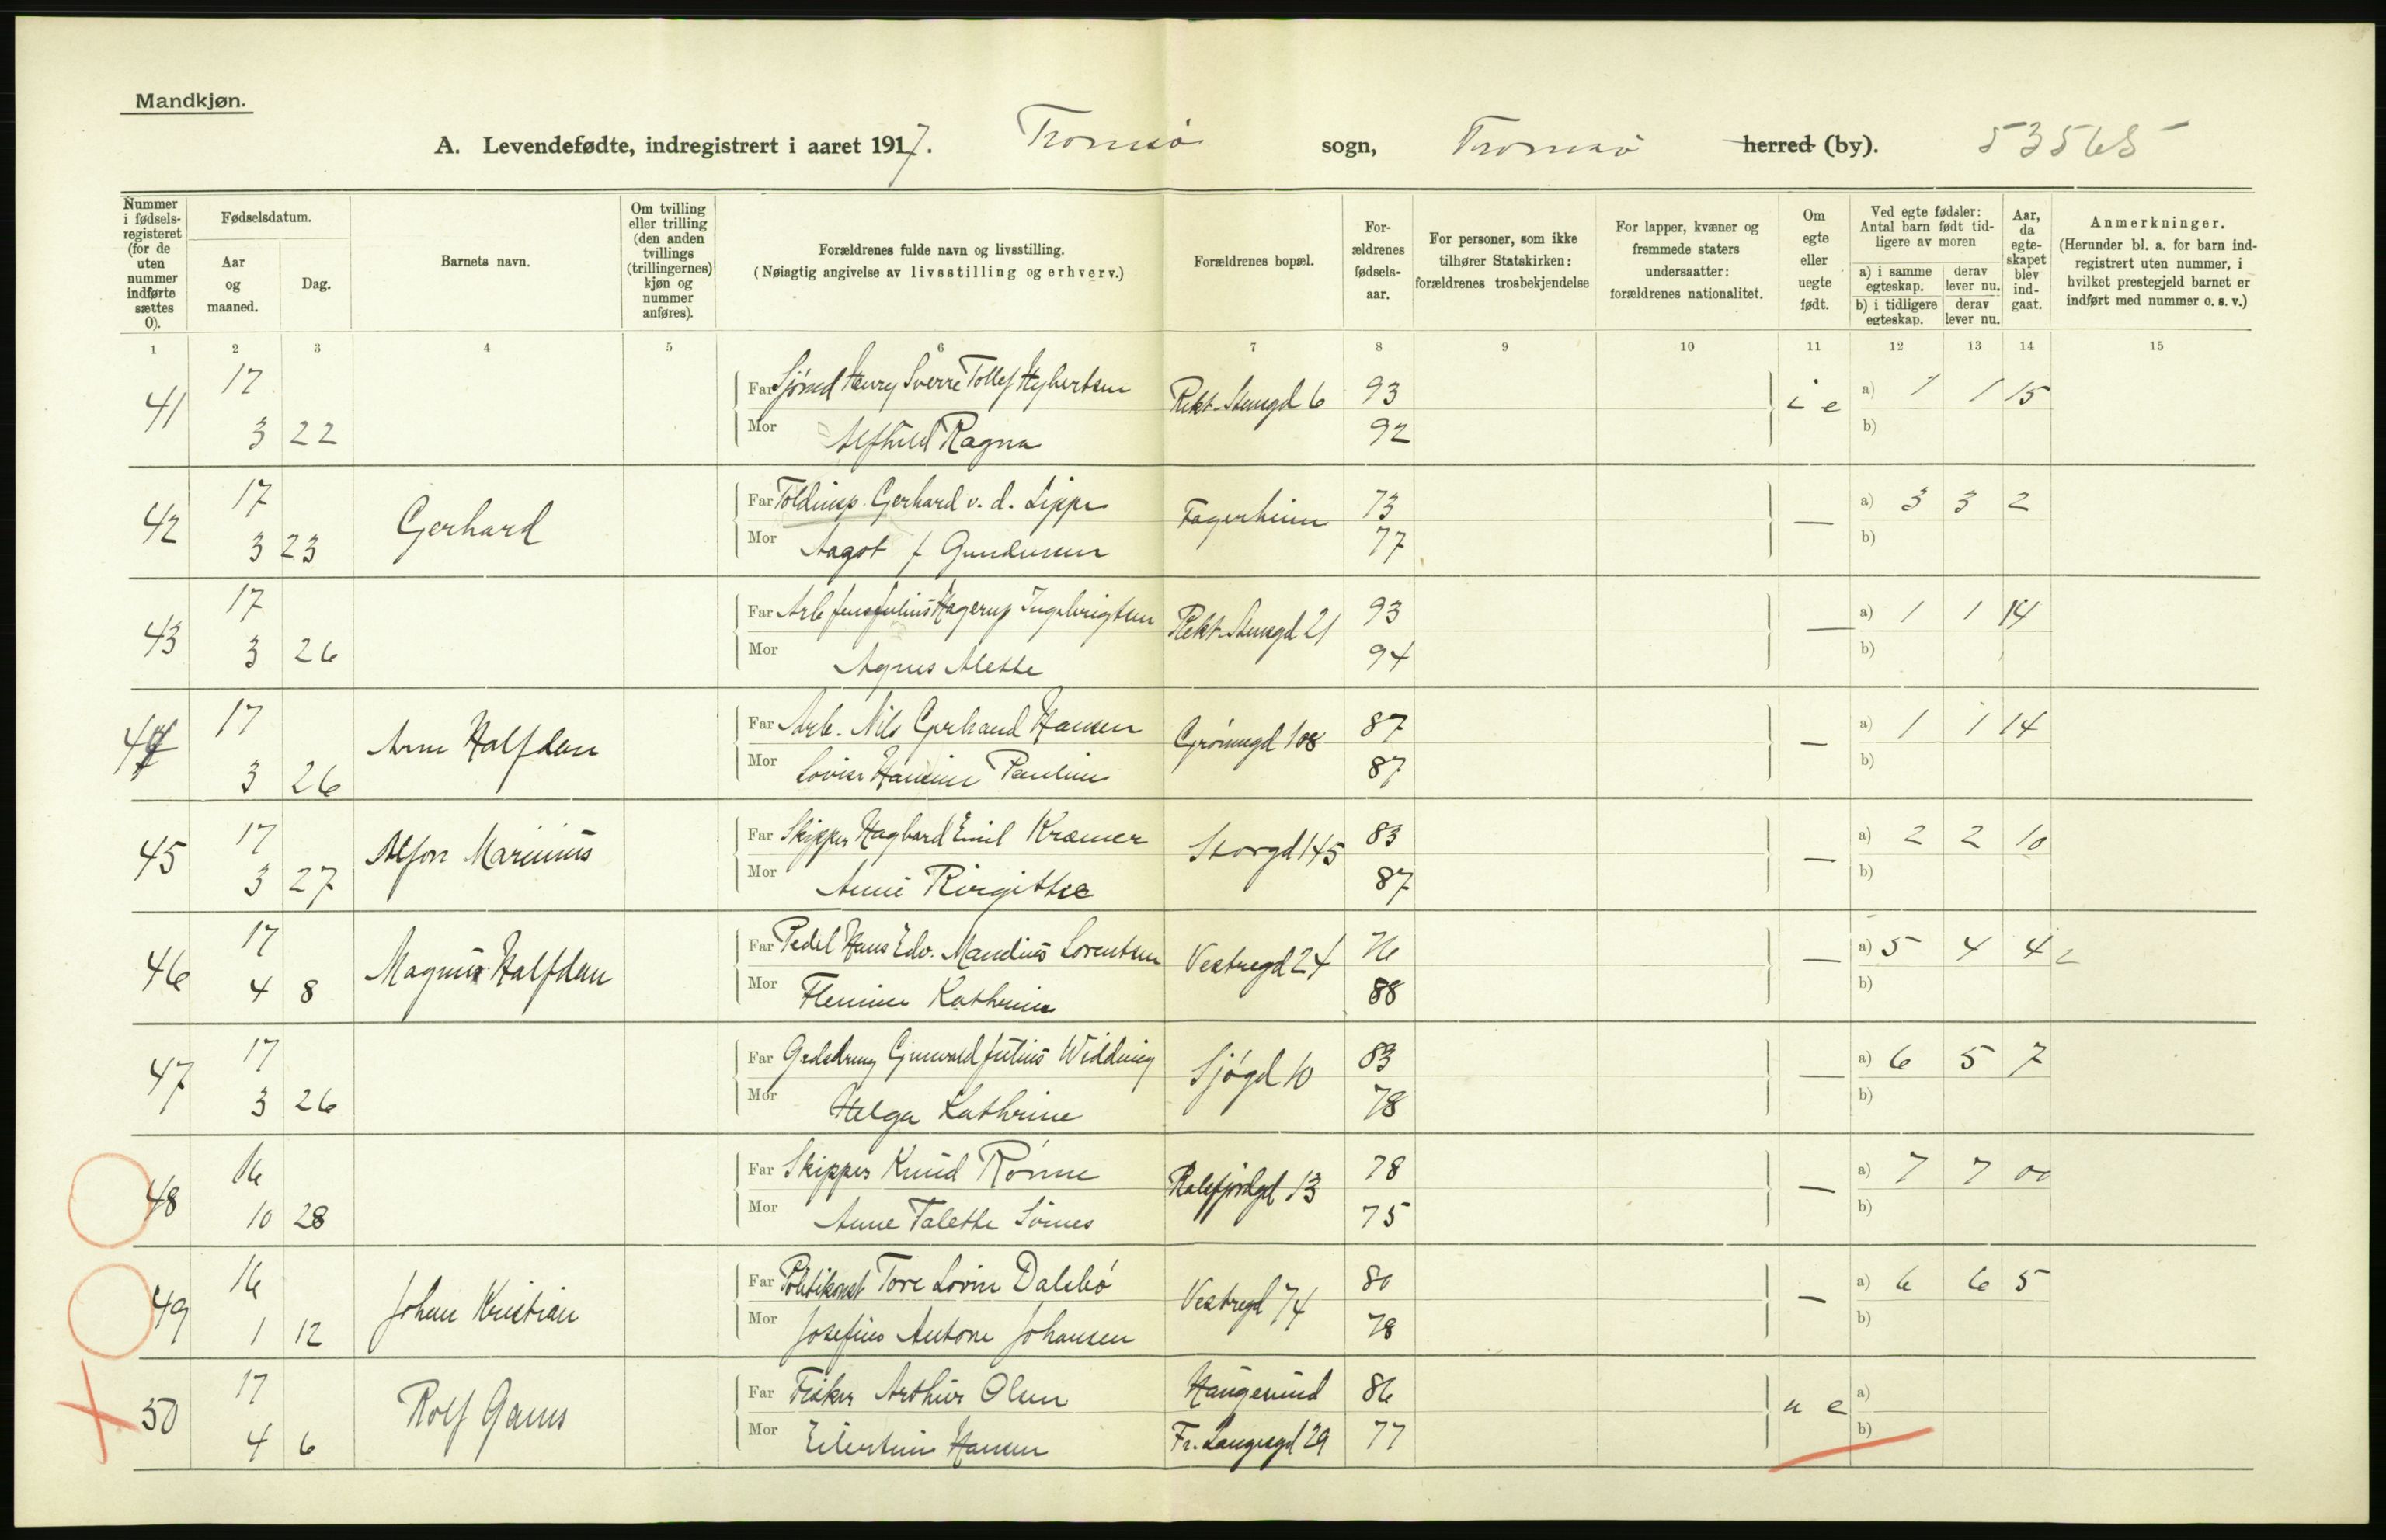 Mandkjøn.
A. Levendefødte, indregistrert i aaret 1917. Tromsø sogn, Tromsø herred (by). 53565
Nummer i fødselsregisteret (for de uten nummer indførte sættes 0).
Fødselsdatum.
Aar og maaned.
Dag.
Barnets navn.
Om tvilling eller trilling (den anden tvillings (trillingernes) kjøn og nummer anføres).
Forældrenes fulde navn og livsstilling.
(Nøiagtig angivelse av livsstilling og erhverv.)
Forældrenes bopæl.
Forældrenes fødselsaar.
For personer, som ikke tilhører Statskirken: forældrenes trosbekjendelse
For lapper, kvæner og fremmede staters undersaatter: forældrenes nationalitet.
Om egte eller uegte født.
Ved egte fødsler: Antal barn født tidligere av moren
a) i samme egteskap. derav lever nu.
b) i tidligere egteskap. derav lever nu.
Aar, da egteskapet blev indgaat.
Anmerkninger.
(Herunder bl. a. for barn indregistrert uten nummer, i hvilket prestegjeld barnet er indført med nummer o. s. v.)
1 2 3 4 5 6 7 8 9 10 11 12 13 14 15
17 Far Henry Sverre Tollef 93 a) 1 1 15
41 Rekt. Steng 6 i e
3 22 Mor Alfhild Ragna 92 b)
17 Far Toldinsp. Gerhard v. d. Lippe 73 a) 3 3 2
42 Gerhard Fagerheim —
3 23 Mor Aagot f Gundersen 77 b)
17 Far Arb Jens Julius Hagerup Ingebrigtsen 93 a) 1 1 14
43 Rekt. Stensgd 21 —
3 26 Mor Agnes Alette 94 b)
17 Far Arb. Nils Gerhard Hansen 87 a) 1 1 14
44 Arne Halfdan Grønnegd 108 —
3 26 Mor Lovise Hansine Pauline 87 b)
17 Far Skipper Hagbard Emil Kræmer 83 a) 2 2 10
45 Alfon Marinius Storgd 145 —
3 27 Mor Anne Birgitte 87 b)
17 Far Pedel Hans Edv. Mandius Lorentsen 76 a) 5 4 4 2
46 Magnus Halfdan Vestregd 24 —
4 8 Mor Kathrine 88 b)
17 Far Julius Widding 83 a) 6 5 7
47 Sjøgd 10 —
3 26 Mor Helga Kathrine 78 b)
16 Far Skipper Knud Rønne 78 a) 7 7 00
48 13 —
10 28 Mor Anne Talette 75 b)
16 Far Politikonst Tore Lovin Dalebø 80 a) 6 6 5
49 Johan Kristian Vestregd 74 —
1 12 Mor Josefine Antone Johansen 78 b)
17 Far Fisker Arthur Olsen Haugesund 86 a)
50 Rolf u e
4 6 Mor Hansen Fr. Langesgd 29 77 b)